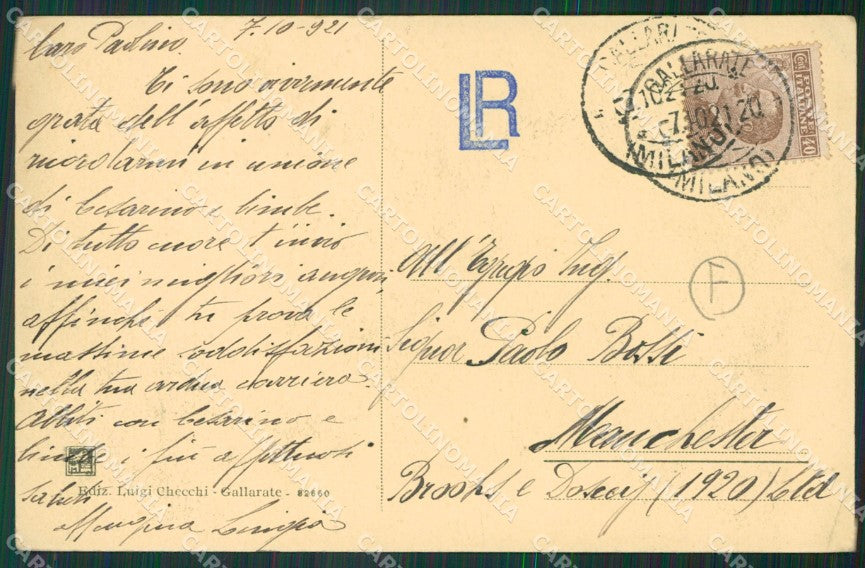 7.10-921
Caro Paolino.
Ti sono vivamente
grata dell'affetto di
ricordarmi in unione
di Cesarino e bimbe.
Di tutto cuore t'invio
i miei migliori auguri,
affinché tu prova le
massime soddisfazioni
nella tua ardua carriera.
Abbiti con Cesarino e
bimbe i più affettuosi
saluti
Luigia
Ediz. Luigi Checchi - Gallarate - 82660
LR
GALLARATE
7.10.21.20
(MILANO)
GALLARATE
7.10.21.20
(MILANO)
40
All'Egregio Ing.
Signor Paolo Bossi
Manchester
Brooks e Doxey (1920) Ltd
F
CARTOLINOMANIA